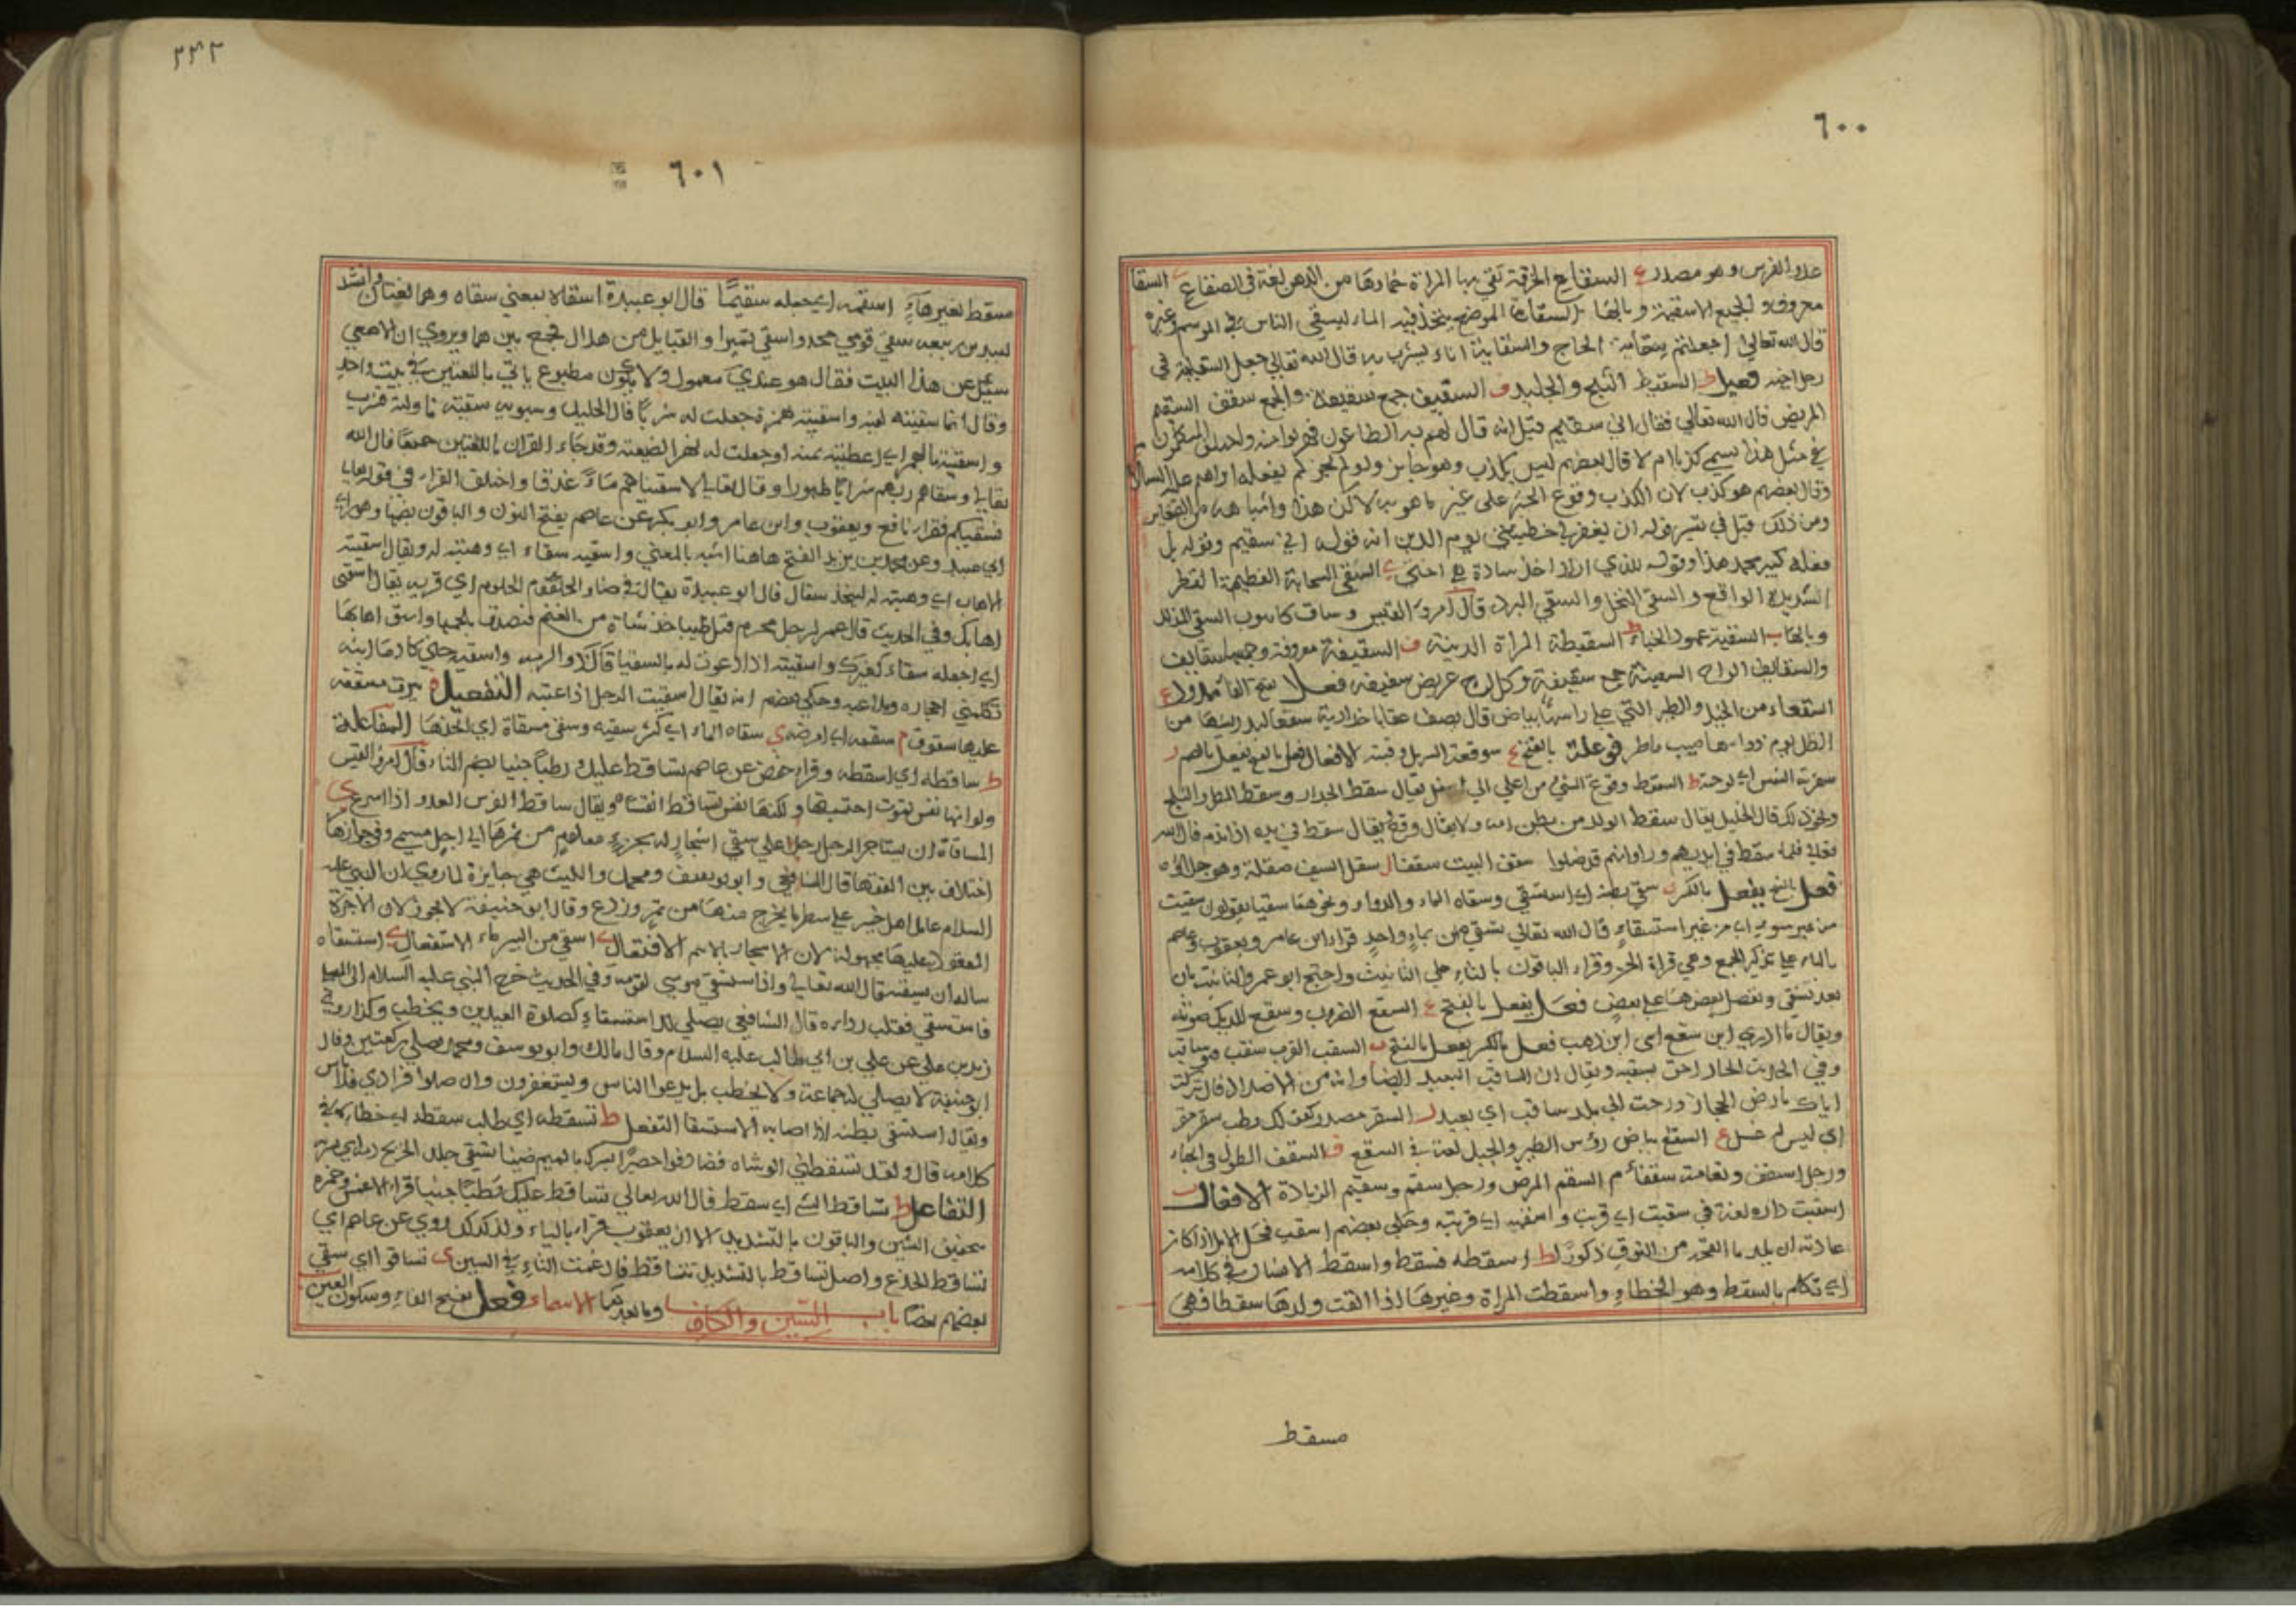 ٦٠٠
عدو الفرس وهو مصدر ع السقاع الخرقة تقي بها المراة خمارها من الدهن لغة في الصقاع ي السقا
معروف والجميع الاسقية وبالها ي السقاية الموضع يتخذ فيه الماء ليسقي الناس في الموسم وغيره
قال الله تعالى اجعلتم سقاية الحاج والسقاية اناء يشرب به قال الله تعالى جعل السقاية في
رحل اخيه فعيل ط السقيط الثلج والجليد ف السقيف جمع سقيفة والجمع سقف السقيم
المريض قال الله تعالى فقال اني سقيم قيل انه قال لهم به الطاعون فهربوا منه واختلف المتكلمون
في مثل هذا يسمى كذبا ام لا قال بعضهم ليس بكذب وهو جايز ولو لم يجز لم يفعله ابراهيم عليه السلام
وقال بعضهم هو كذب لان الكذب وقوع الخبر على غير ما هو به لاكن هذا واشباهه من الصغاير
ومن ذلك قيل في تفسير قوله ان يغفر لي خطيئتي يوم الدين انه قوله اني سقيم وقوله بل
فعله كبيرهم هذا وقوله للذي اراد اخذ سارة هي اختي ي السقي السحابة العظيمة القطر
الشديدة الواقع والسقي النخل والسقي البردي قال امرؤ القيس وساق كانبوب السقي المذلل
وبالهاء ب السقيبة عمود الخباء ط السقيطة المراة الدنية ف السقيفة معروفة وجمعها سقايف
والسقايف الواح السفينة جمع سقيفة وكل لوح عريض سقيفة فعلا بفتح الفا ممدود ع
السقعاء من الخيل والطير التي على راسها بياض قال يصف عقابا خدارية سقعاء لبد ريشها من
الطل يوم ذو اهاضيب ماطر فوعلة بالفتح ع سوقعة الثريد وقبته الافعال فعل بالفتح يفعل بالضم ر
سقرته الشمس اي لوحته ط السقوط وقوع الشي من اعلى الى اسفل يقال سقط الجدار وسقط المطر والثلج
ونحو ذلك قال الخليل يقال سقط الولد من بطن امه ولا يقال وقع يقال سقط في يده اذا ندم قال الله
تعالى فلما سقط في ايديهم وراوا انهم قد ضلوا سقف البيت سقفا ل سقل السيف صقله وهو جلاؤه
فعل بالفتح يفعل بالكسر ي سقى بطنه اي استسقى وسقاه الماء والدواء ونحوهما سقيا يقولون سقيت
من غير سوم اي من غير استسقاء قال الله تعالى تسقى من بماء واحد قراء ابن عامر ويعقوب وعاصم
بالياء على تذكير الجمع وهي قراة الحسن وقراء الباقون بالتاء على التانيث واحتج ابو عمرو للتانيث بان
بعد تسقى ونفضل بعضها على بعض فعل يفعل بالفتح ع السقع الضرب وسقع الديك صوته
ويقال ما ادري اين سقع اي اين ذهب فعل بالكسر يفعل بالفتح ب السقب القرب سقب فهو ساقب
وفي الحديث الجار احق بسقبه ويقال ان الساقب البعيد ايضا وانه من الاضداد قال تركت
اباك بارض الحجاز ورحت الى بلد ساقب اي بعيد ر السقر مصدر كقولك رطب سقر صقر
اي ليس له عسل ع السقع بياض رؤس الطير والخيل لغة في السقع ف السقف الطول في انحناء
ورجل اسقف ونعامة سقفاء م السقم المرض ورجل سقم وسقيم الزيادة الافعال ب
اسقبت داره لغة في سقبت اي قربت واسقبه اي قربته وحكى بعضهم اسقب فحل الابل اذا كان
عادته ان يلد ما القح من النوق ذكورا ط اسقطه فسقط واسقط الانسان في كلامه
اي تكلم بالسقط وهو الخطاء واسقطت المراة وغيرها اذا القت ولدها سقطا فهي
مسقط
٢٤٢
٦٠١
مسقط بغير هاء اسقمه اي جعله سقيما قال ابو عبيدة اسقاه بمعنى سقاه وهما لغتان وانشد
لبيد بن ربيعة سقى قومي مجد واسقى نميرا والقبايل من هلال فجمع بينهما ويروى ان الاصمعي
سئل عن هذا البيت فقال هو عندي معمول ولا يكون مطبوع ياتي باللغتين في بيت واحد
وقال انما سقيته لفيه واسقيته نهرة جعلت له شربا قال الخليل وسيبويه سقيته ناولته فشرب
واسقيته بالهمز اي اعطيته منه او جعلت له نهرا لضيعته وقد جاء القران باللغتين جميعا قال الله
تعالى وسقاهم ربهم شرابا طهورا وقال تعالى لاسقيناهم ماء غدقا واختلف القراء في قوله تعالى
نسقيكم فقراء نافع ويعقوب وابن عامر وابو بكر عن عاصم بفتح النون والباقون بضمها وهو راي
ابي عبيد وعن محمد بن يزيد الفتح هاهنا اشبه بالمعنى واسقيه سقاء اي وهبته له ويقال اسقيته
الاهاب اي وهبته له ليتخذ سقا قال ابو عبيدة يقال
اهابك وفي الحديث قال عمر لرجل محرم قتل ظبيا خذ شاة من الغنم فتصدق بلحمها واسق اهابها
اي اجعله سقاء لغيرك واسقيته اذا دعوت له بالسقيا قال ذو الرمه واسقيه حتى كاد مما ابثه
تكلمني احجاره وملاعبه وحكى بعضهم انه يقال اسقيت الرجل اذا عبته التفعيل ف بيوت مسقفه
عليها سقوف م سقمه اي امرضه ي سقاه الماء اي كثر سقيه وسقى مسقاة اي اتخذها المفاعلة
ط ساقطه اي اسقطه وقراء حفص عن عاصم تساقط عليك رطبا جنيا بضم التاء قال امرؤ القيس
ولو انها نفس تموت احتسبتها ولكنها نفس تساقط انفسا ويقال ساقط الفرس العدو اذا اسرع ي
المساقاة ان يستاجر الرجل رجلا على سقي اشجار له بجزء معلوم من ثمرها الى اجل مسمى وفي جوازها
اختلاف بين الفقها قال الشافعي وابو يوسف ومحمد والليث هي جايزة لما روي ان النبي عليه
السلام عامل اهل خيبر على شطر ما يخرج منها من ثمر وزرع وقال ابو حنيفة لا يجوز لان الاجرة
المعقود عليها مجهولة لان الاستيجار بالاسم الافتعال ي استقى من البير ماء الاستفعال ي استسقاه
ساله ان يسقيه قال الله تعالى واذ استسقى موسى لقومه وفي الحديث خرج النبي عليه السلام الى المصلى
فاستسقى فقلب رداءه قال الشافعي يصلي للاستسقاء كصلوة العيدين ويخطب وكذا روى
زيد بن علي عن علي بن ابي طالب عليه السلام وقال مالك وابو يوسف ومحمد يصلي ركعتين وقال
ابو حنيفة لا يصلي له جماعة ولا يخطب بل يدعوا الناس ويستغفرون وان صلوا فرادي فلا باس
ويقال استسقى بطنه اذا اصابه الاستسقا التفعل ط تسقطه اي طلب سقطه اي خطاءه في
كلامه قال ولقد تسقطني الوشاة فصادفوا حصرا بسرك يا اميم ضنينا
التفاعل ط تساقط الشي اي سقط قال الله تعالى تساقط عليك رطبا جنيا قراء الاعمش وحمزة
بتخفيف السين والباقون بالتشديد الا ان يعقوب قراء بالياء وكذلك روي عن عاصم اي
تساقط الجذع واصل تساقط بالتشديد تتساقط فادغمت التاء في السين ي تساقوا اي سقى
بعضهم بعضا باب السين والكاف وما بعدهما الاسماء فعل بفتح الفاء وسكون العين